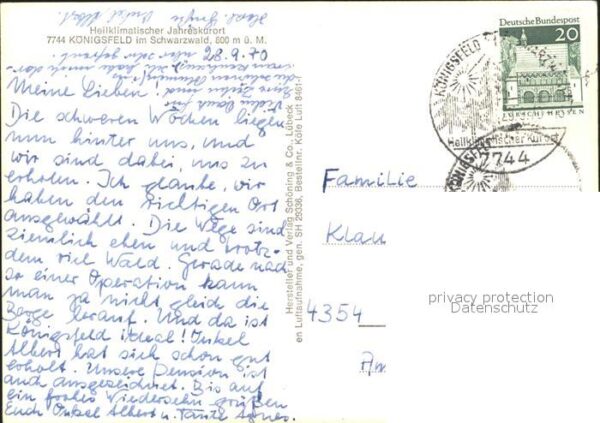 Heiklimatischer Jahreskurort
7744 KÖNIGSFELD im Schwarzwald, 800 m ü. M.
28.9.70
Meine Lieben!
Die schweren Wochen liegen
nun hinter uns, und
wir sind dabei, uns zu
erholen. Ich glaube, wir
haben den richtigen Ort
ausgewählt. Die Wege sind
ziemlich eben und trotz-
dem viel Wald. Gerade nach
so einer Operation kann
man ja nicht gleich die
Berge herauf. Und da ist
Königsfeld ideal! Onkel
Albert hat sich schon gut
erholt. Unsere Pension ist
auch ausgezeichnet. Bis auf
ein frohes Wiedersehn grüßen
Euch Onkel Albert u. Tante Agnes.
Hersteller und Verlag Schöning & Co., Lübeck
en Luftaufnahme, gen. SH 29336, Bestellnr. Köte Luft 8461-f
Deutsche Bundespost
20
LORSCH/HESSEN
KÖNIGSFELD
Heilklimatischer Kurort
7744
Familie
Klau
4354
privacy protection
Datenschutz